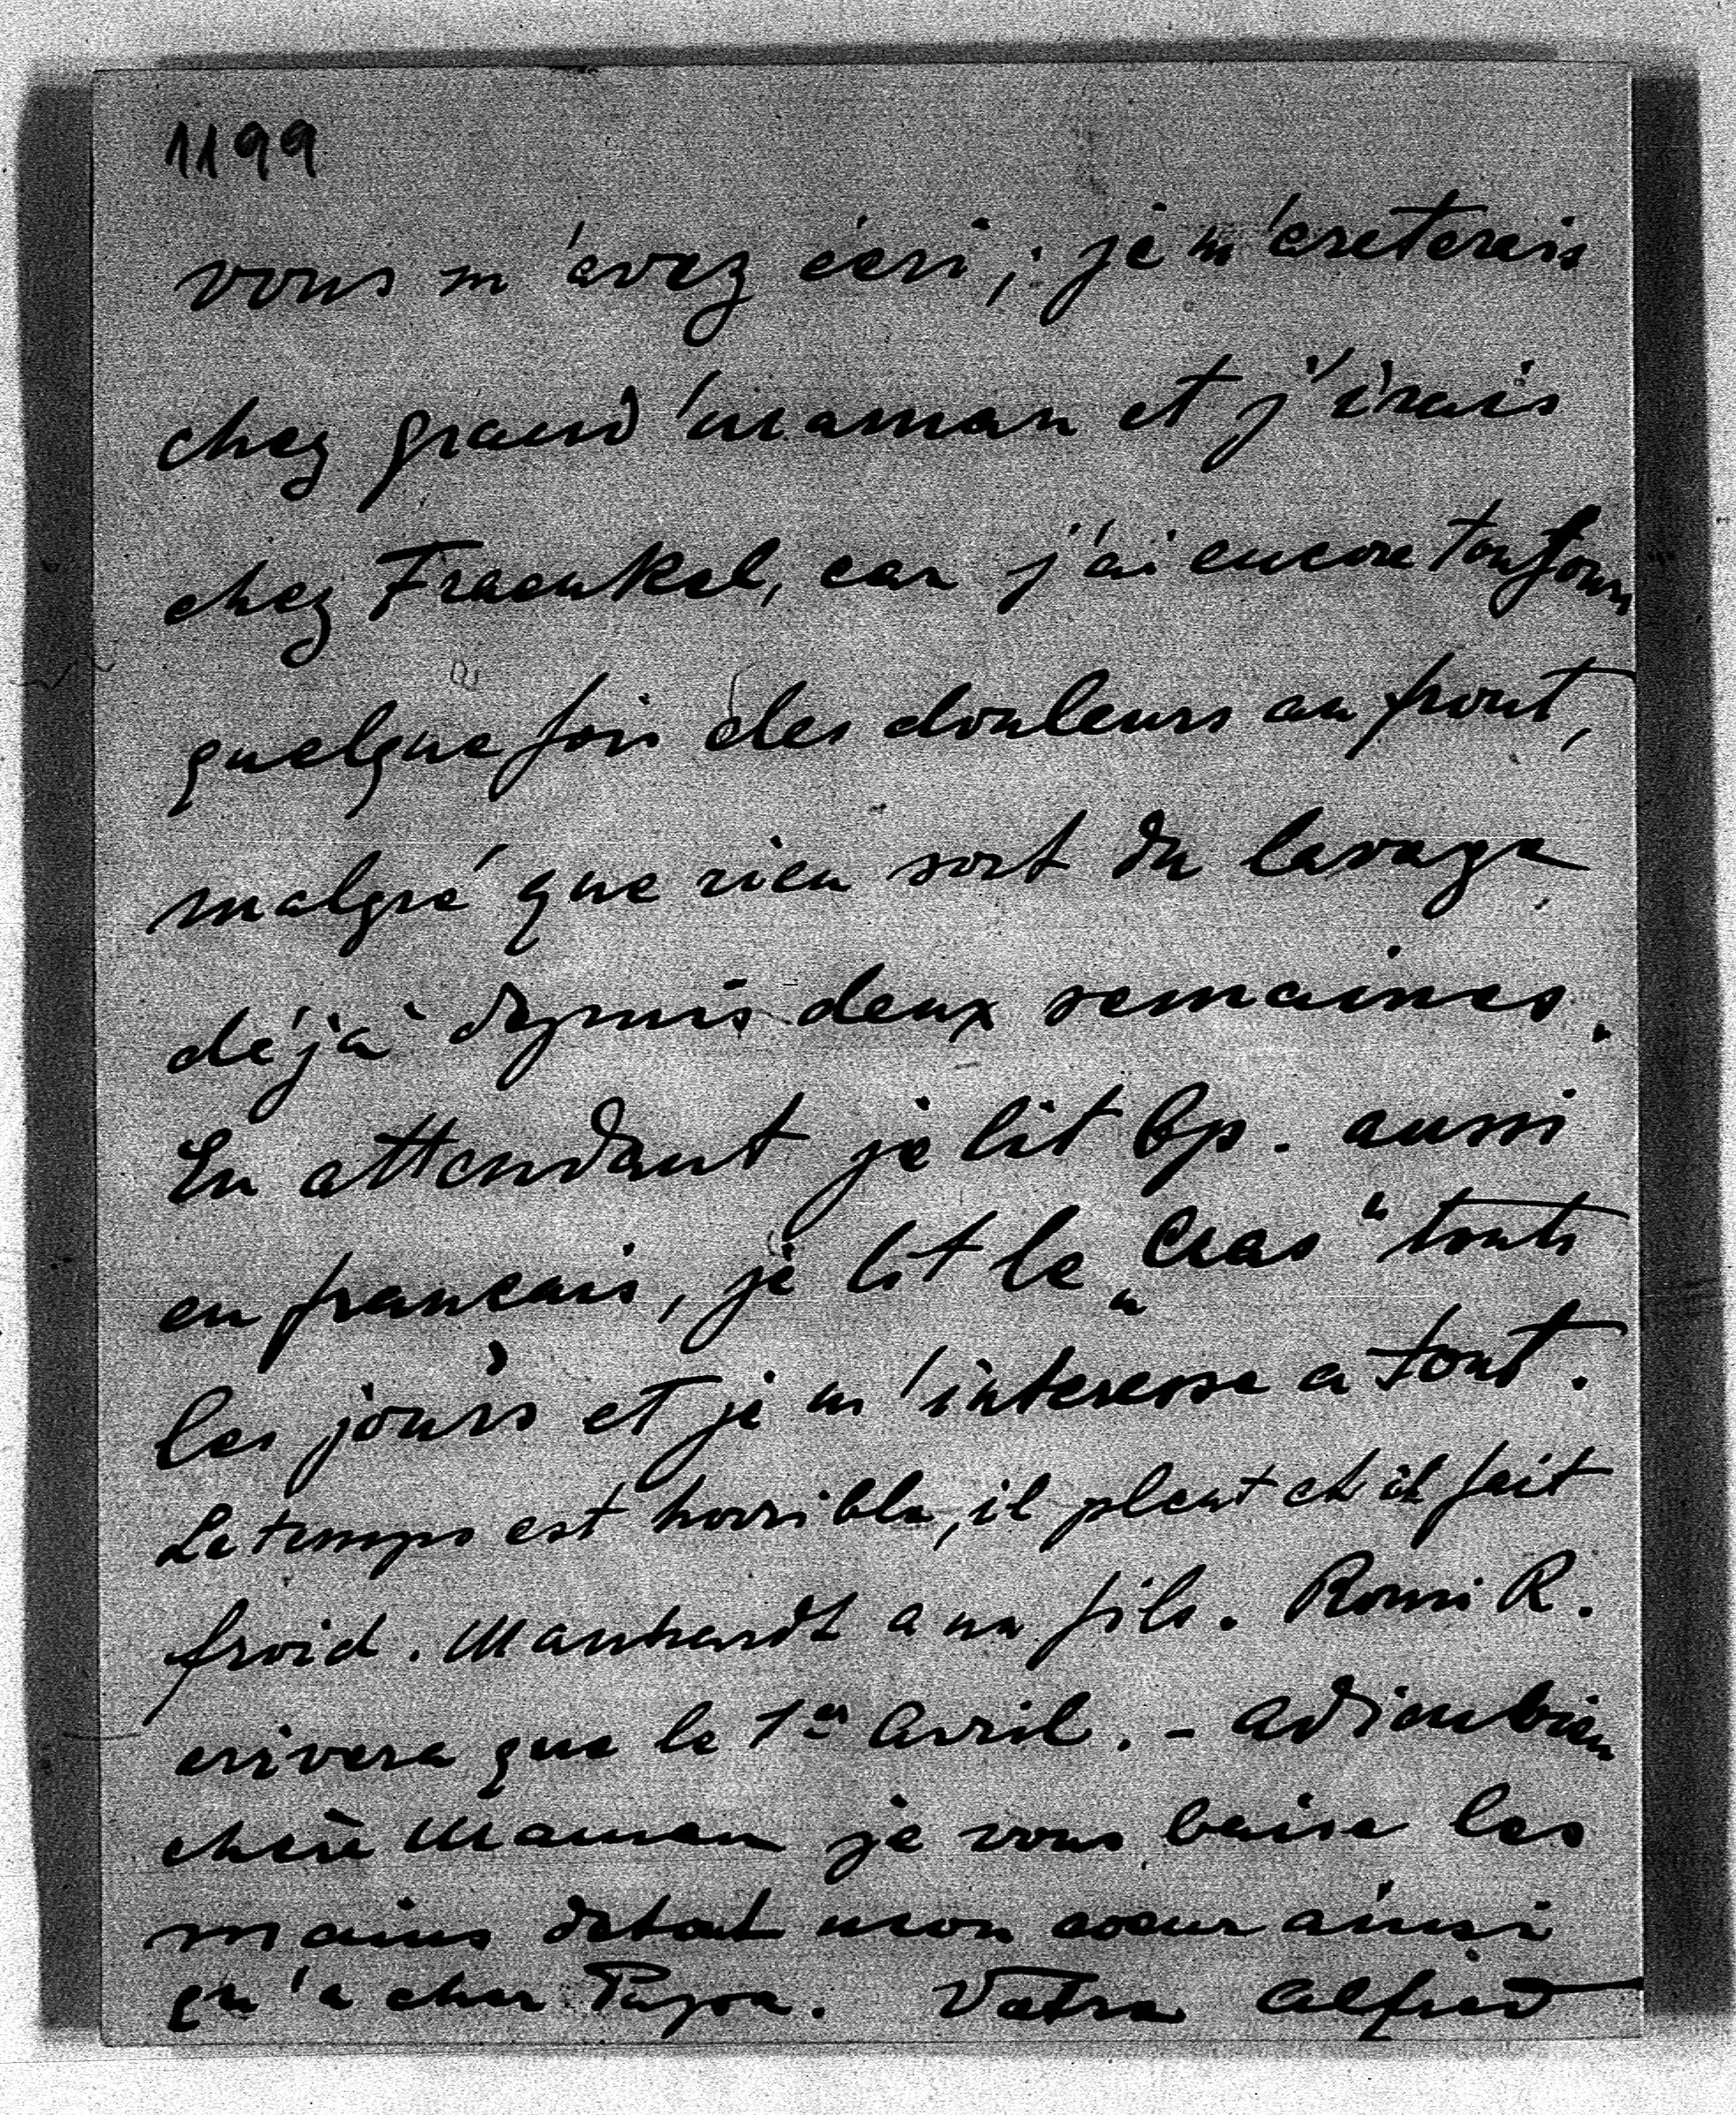 1199
vous m'avez écri; je m'areterais
chez grand'maman et j'irais
chez Fraenkel, car j'ai encore toujours
quelque fois des douleurs au front,
malgré que rien sort du lavage
déjà depuis deux semaines.
En attendant je lit bp. aussi
en francais, je lit le „Cras“ touts
les jours et je m'interesse a tout.
Le temps est horrible, il pleut et il fait
froid. Manhardt a un fils. Romi R.
arivera que le 1er Avril. - Adieu bien
chère Maman je vous baise les
mains de tout mon coeur ainsi
qu'a cher Papa. Votre Alfred